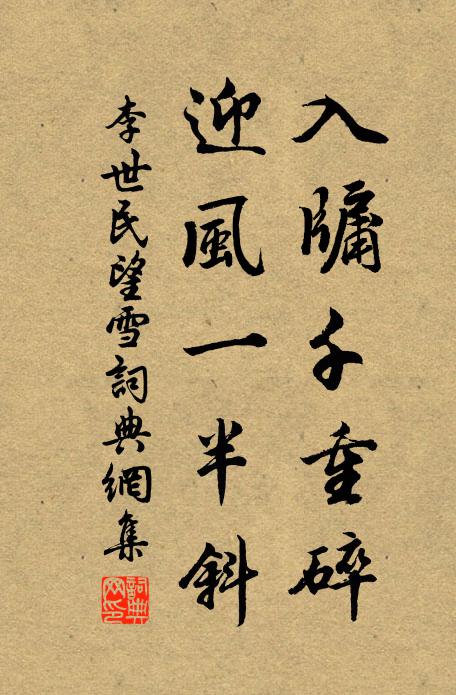 入牗千重碎
迎風一半斜
李世民望雪詞典網集
詞典网印